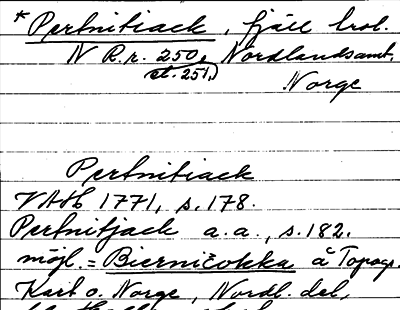 * Pertnitiack, fjäll trol.
N R.r. 250, Nordlandsamt,
st. 251,)
Norge
Pertnitiack
1771, s. 178.
Pertnitjack a.a., s. 182.
möjl. = Bierničokka å Topogr.
Kart o. Norge, Nordl. del,